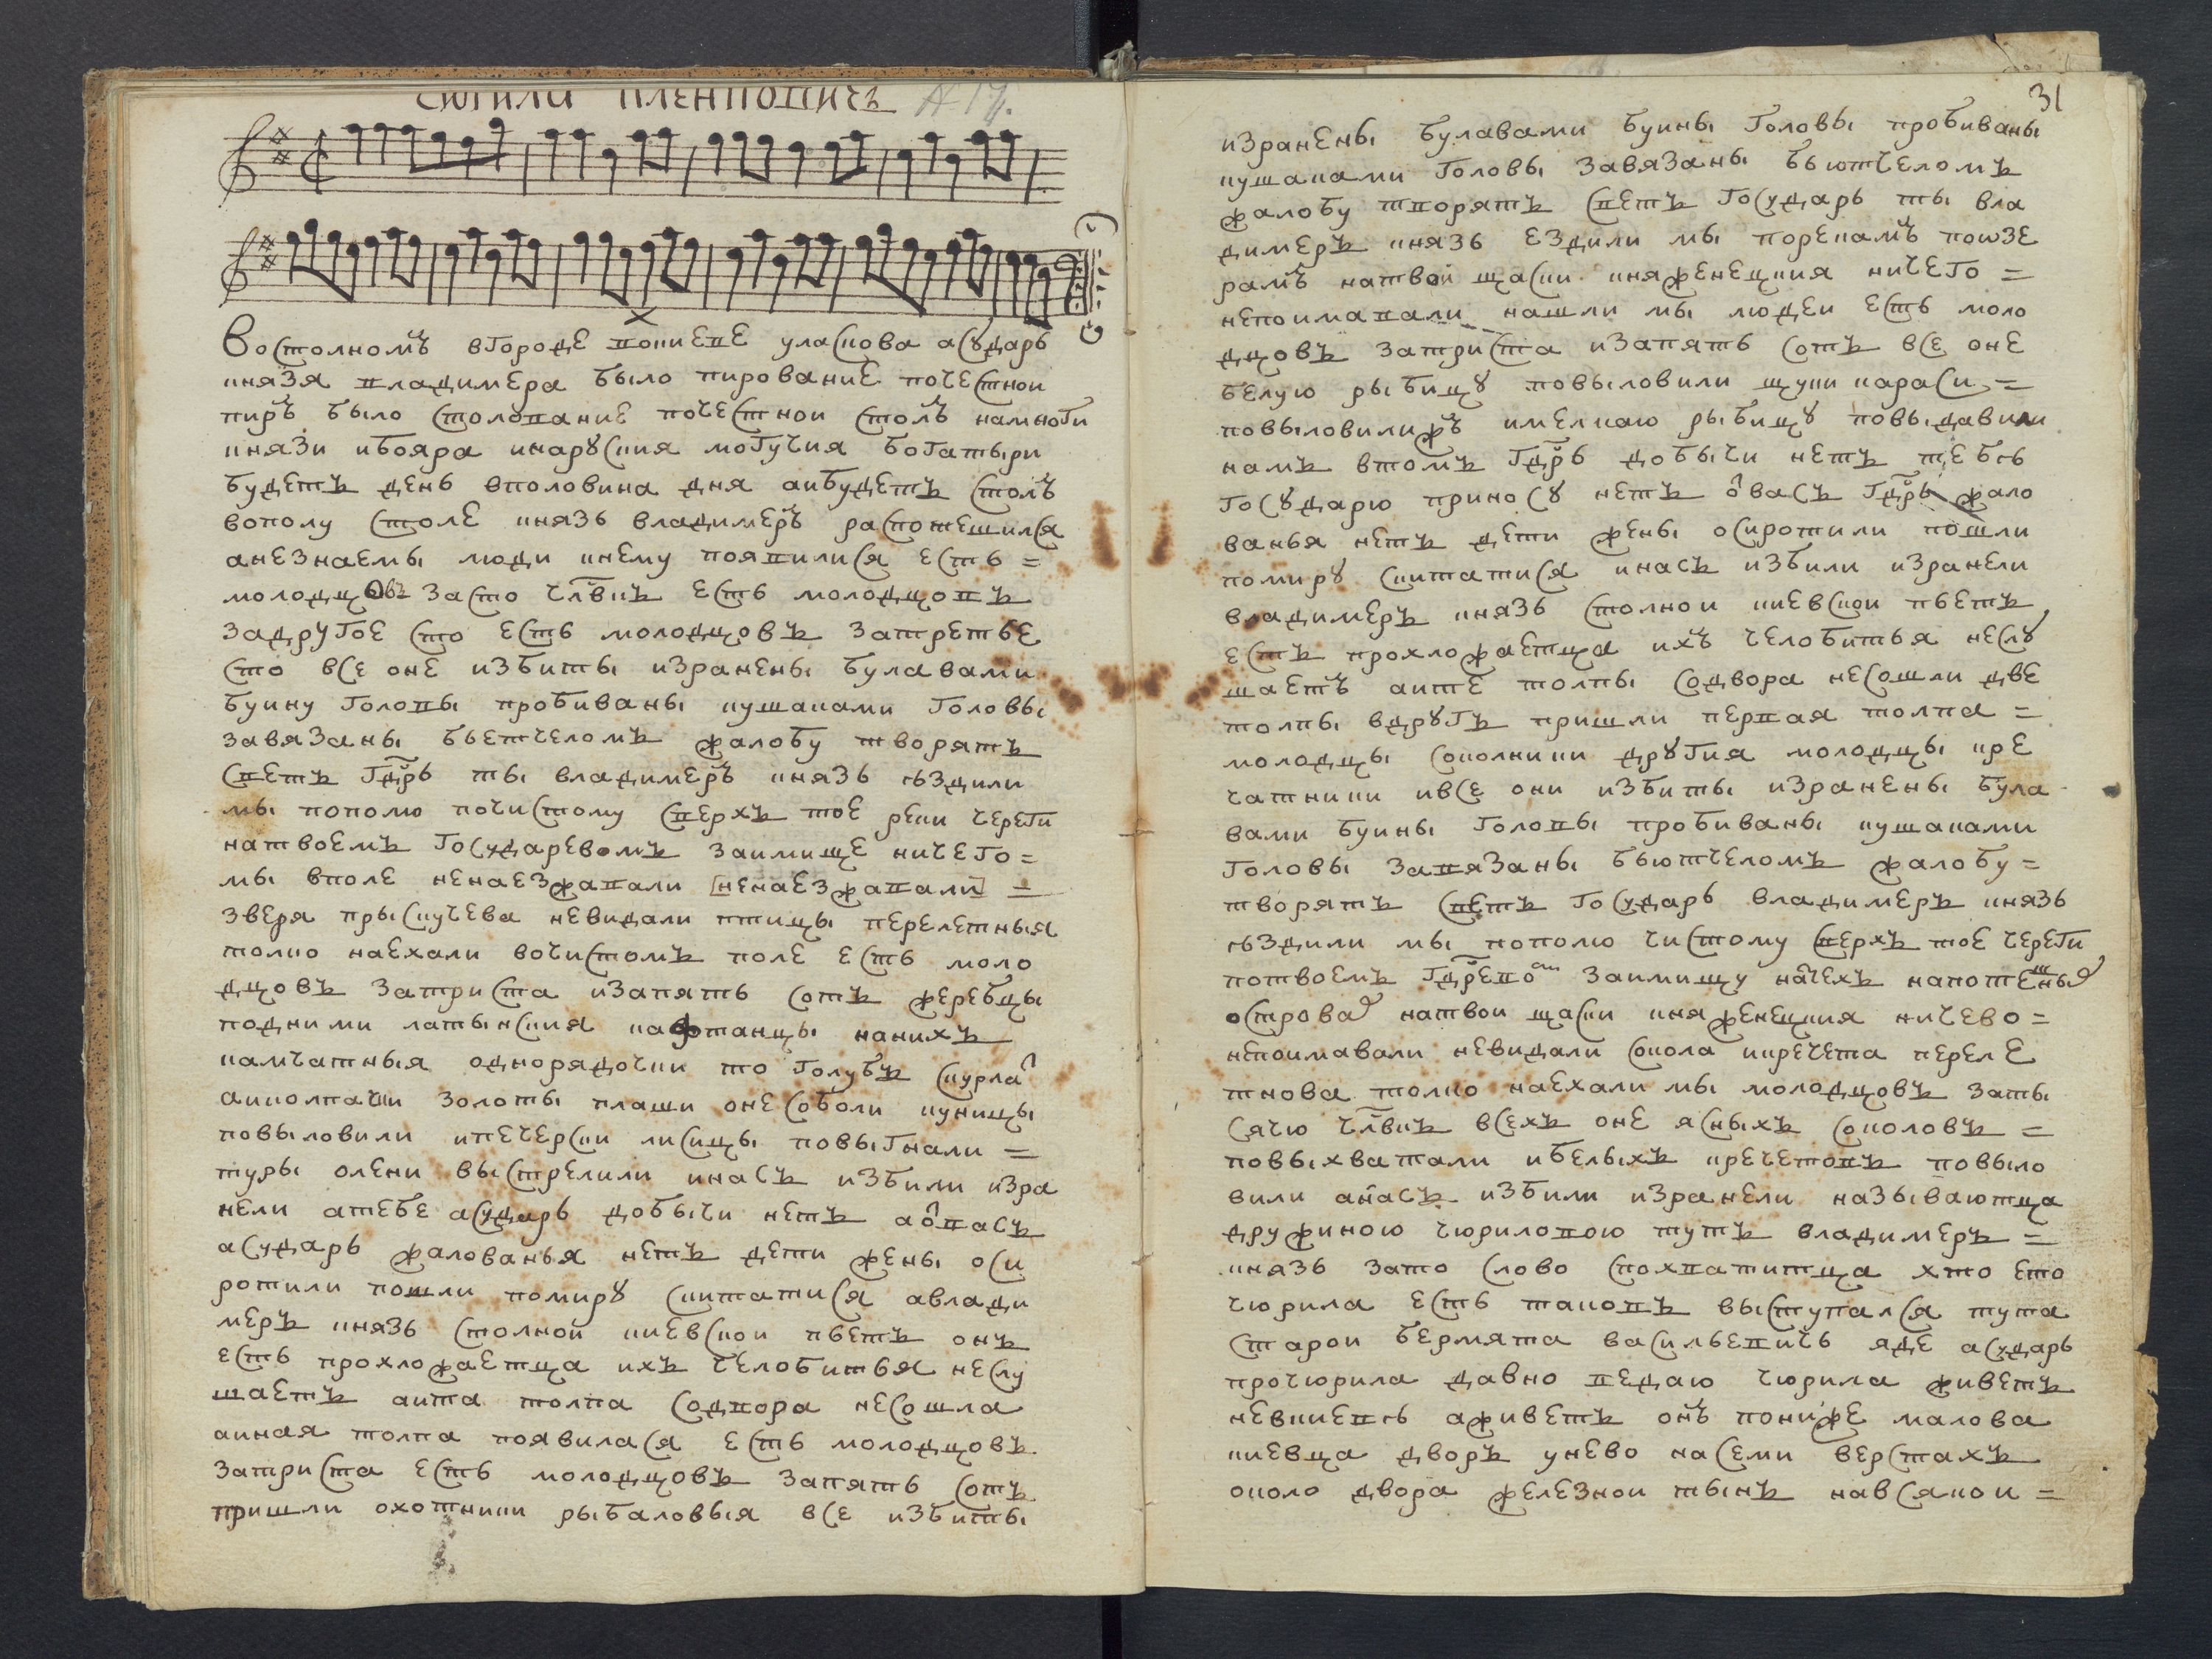 чюрила пленковичь № 17.
Востолномъ вгороде вокиеве уласкова асударь
князя владимера было пирование почестнои
пиръ было столование почестнои столъ намноги
князи ибояра инаруския могучия богатыри
будетъ день вполовина дня аибудетъ столъ
вополу столе князь владимеръ распотешился
анезнаемы люди кнему появилися есть =
молодцовъ засто члвкъ есть молодцовъ
задругое сто есть молодцовъ затретье
сто все оне избиты изранены булавами
буину головы пробиваны кушаками головы
завязаны бьетчеломъ жалобу творятъ
светъ гдрь ты владимеръ князь ѣздили
мы пополю почистому сверхъ тое реки череги
натвоемъ государевомъ заимище ничего =
мы вполе ненаезжавали [ненаезжавали] =
зверя прыскучева невидали птицы перелетныя
толко наехали вочистомъ поле есть моло
дцовъ затриста изапять сотъ жеребцы
подними латынския кафтанцы нанихъ
камчатныя однорядочки то голубъ скурла
аиколпачки золоты плаши оне соболи куницы
повыловили ипечерски лисицы повыгнали =
туры олени выстрелили инасъ избили изра
нели атебе асударь добычи нетъ аѡвасъ
асударь жалованья нетъ дети жены оси
ротили пошли помиру скитатися авлади
меръ князь столнои киевскои пьетъ онъ
есть прохлождаетца ихъ челобитья неслу
шаетъ аита толпа содвора несошла
аиная толпа появилася есть молодцовъ
затриста есть молодцовъ запять сотъ
пришли охотники рыбаловыя все избиты
31
изранены булавами буины головы пробиваны
кушаками головы завязаны бьютчеломъ
жалобу творятъ светъ государь ты вла
димеръ князь ездили мы порекамъ поѡзе
рамъ натвои щаски княженецкия ничего =
непоимавали нашли мы людеи есть моло
дцовъ затриста изапять сотъ все оне
белую рыбицу повыловили щуки караси =
повыловилижъ имелкаю рыбицу повыдавили
намъ втомъ гдрь добычи нетъ тебѣ
государю приносу нетъ ѡвасъ гдрь жало
ванья нетъ дети жены осиротили пошли
помиру скитатися инасъ избили изранели
владимеръ князь столнои киевскои пьетъ
естъ прохложаетца ихъ челобитья неслу
шаетъ аите толпы содвора несошли две
толпы вдругъ пришли первая толпа =
молодцы соколники другия молодцы кре
чатники ивсе они избиты изранены була
вами буины головы пробиваны кушаками
головы завязаны бьютчеломъ жалобу =
творятъ светъ государь владимеръ князь
ѣздили мы пополю чистому сверхъ тое череги
потвоемъ гдрево заимищу начехъ напотешных
островах натвои щаски княженецкия ничево =
непоимавали невидали сокола икречета переле
тнова толко наехали мы молодцовъ заты
сячю члвкъ всехъ оне ясныхъ соколовъ =
повыхватали ибелыхъ кречетовъ повыло
вили анасъ избили изранели называютца
дружиною чюриловою тутъ владимеръ =
князь зато слово спохватитца хто ето
чюрила есть таковъ выступался тута
старои бермята васильевичь яде асударь
прочюрила давно ведаю чюрила живетъ
невкиевѣ аживетъ онъ пониже малова
киевца дворъ унево насеми верстахъ
около двора железнои тынъ навсякои =